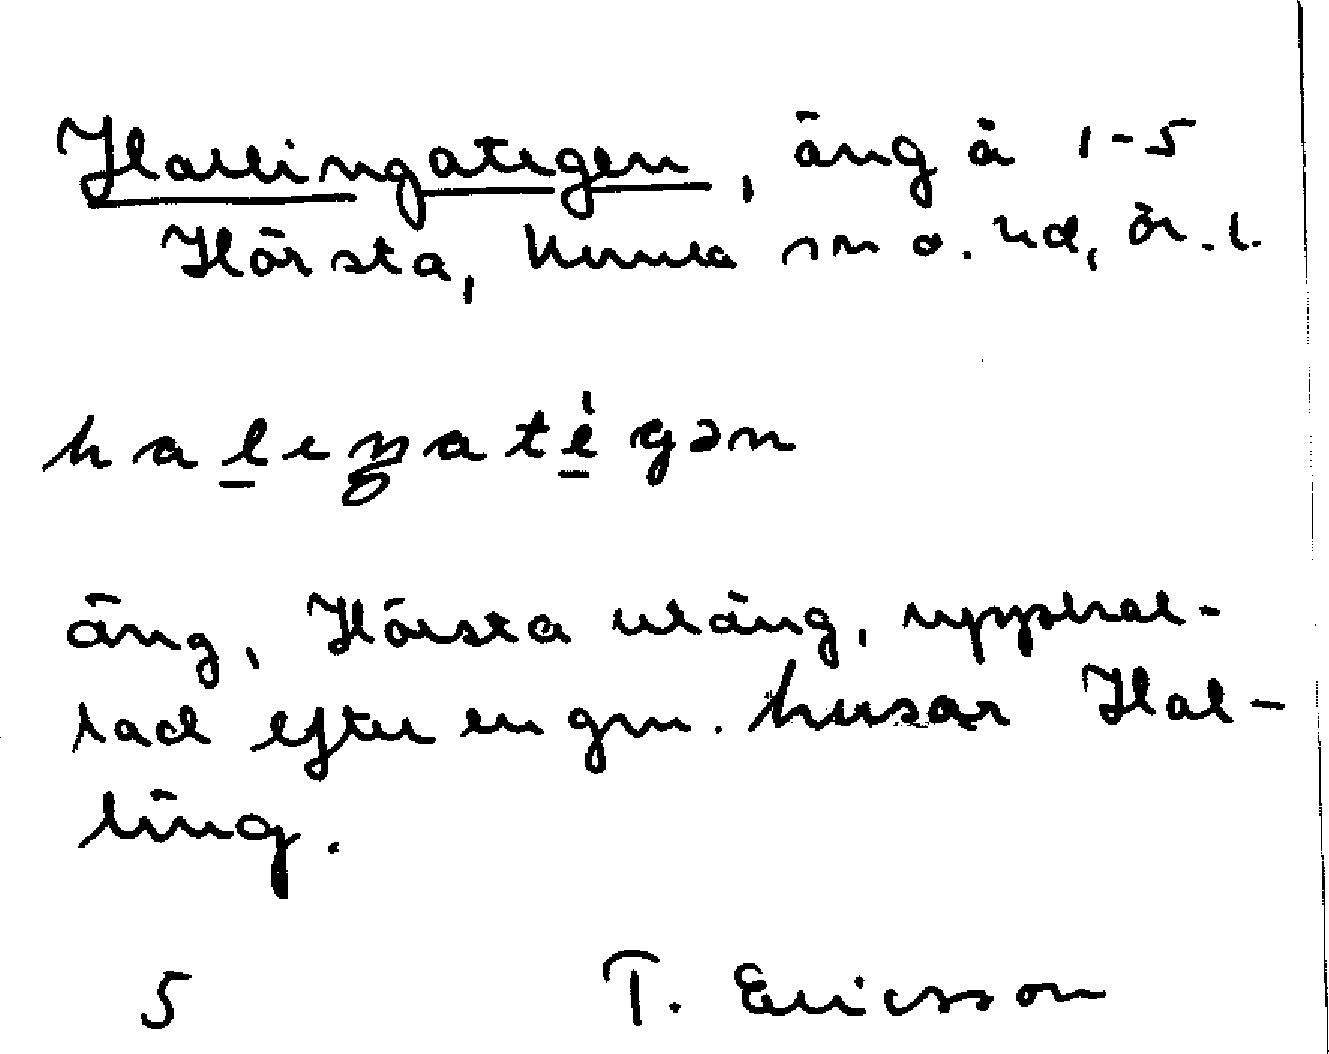 Hallingategen, äng å 1-5
Hörsta, Kumla sn o. hd, ör. l.
halıŋatègən
äng, Hörsta utäng, uppkal-
lad efter en gm. husar Hal-
ling.
5 T. Ericsson